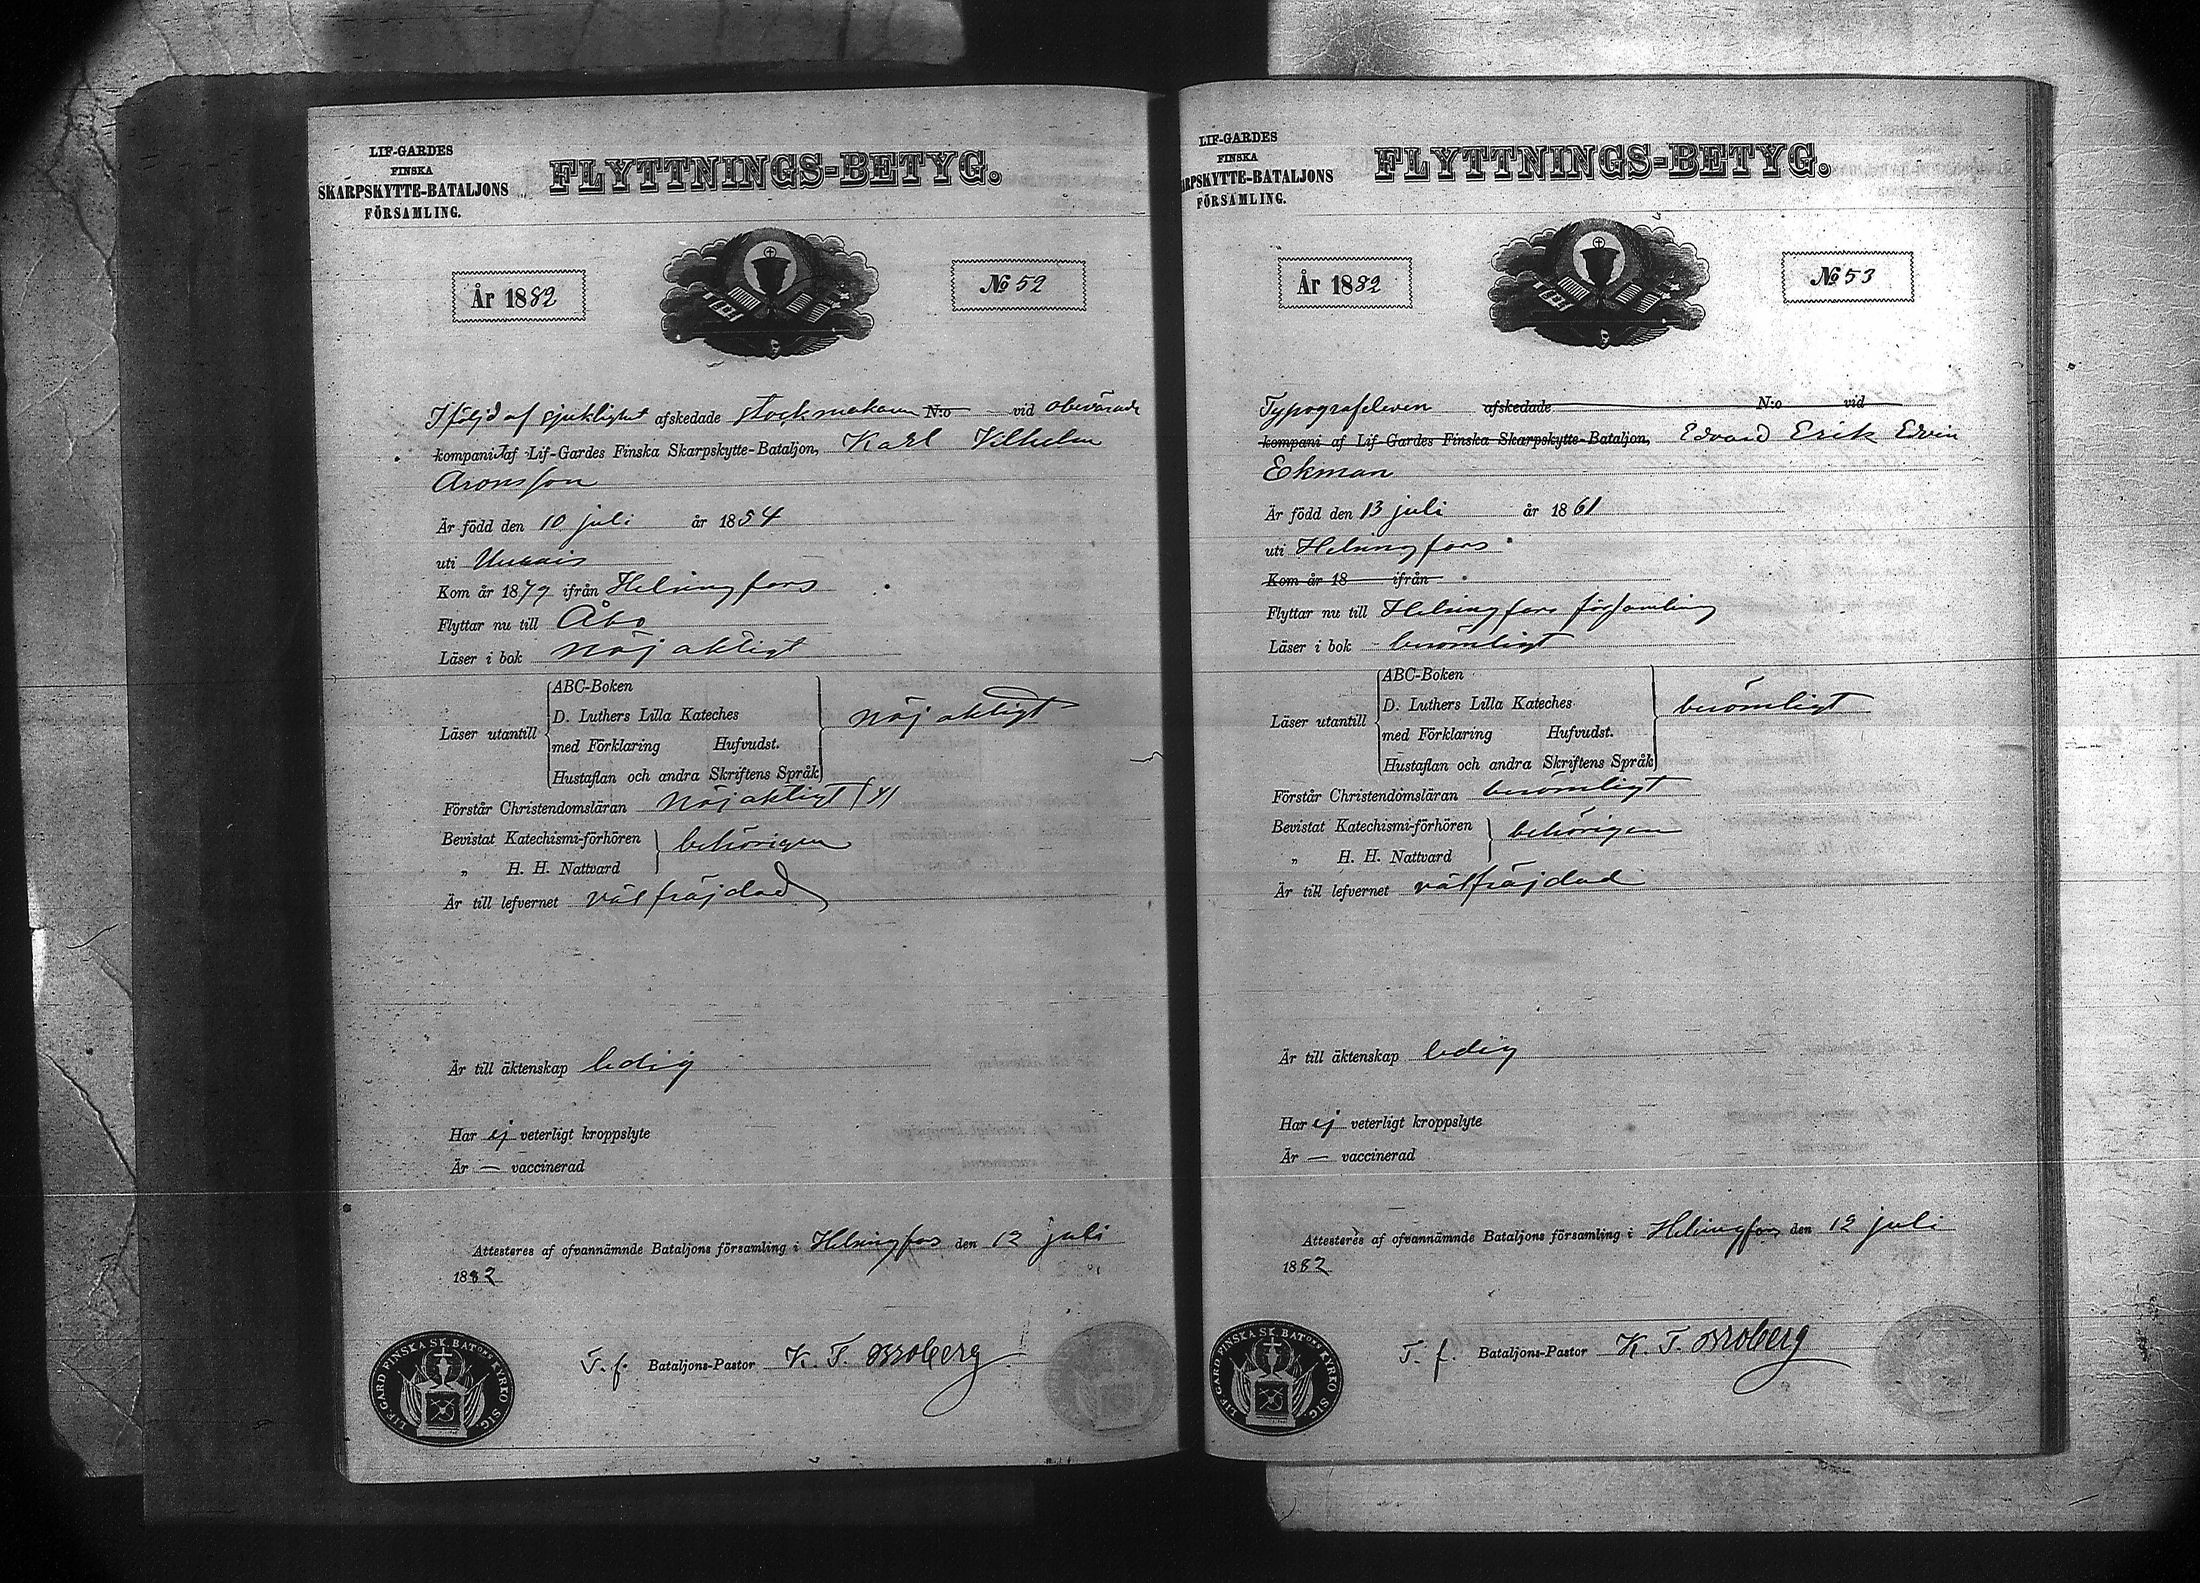 LIF-GARDES
FINSKA
SKARPSKYTTE-BATALJONS
FÖRSAMLING.
FLYTTNINGS-BETYG.
År 1882
№ 52
I följd af sjuklighet afskedade stockmakaren N:o vid obevärade
kompani af Lif-Gardes Finska Skarpskytte-Bataljon, Karl Vilhelm
Aronsson
Är född den 10 juli år 1854
uti
Kom år 1879 ifrån Helsingfors
Flyttar nu till Åbo
Läser i bok nöjaktigt
Läser utantill
ABC-Boken
D. Luthers Lilla Kateches
med Förklaring Hufvudst.
Hustaflan och andra Skriftens Språk
nöjaktigt
Förstår Christendomsläran nöjaktigt
Bevistat Katechismi-förhören
„ H. H. Nattvard
behörigen
Är till lefvernet välfräjdad
Är till äktenskap ledig
Har ej veterligt kroppslyte
Är — vaccinerad
Attesteres af ofvannämnde Bataljons församling i Helsingfors den 12 juli
1882
T. f. Bataljons-Pastor K. T. Broberg
LIF. GARD FINSKA SK. BATONS KYRKO SIG.
LIF-GARDES
FINSKA
RPSKYTTE-BATALJONS
FÖRSAMLING.
FLYTTNINGS-BETYG.
År 1882
№ 53
Typografeleven afskedade N:o vid
kompani af Lif-Gardes Finska Skarpskytte-Bataljon, Edvard Erik Edvin
Ekman
Är född den 13 juli år 1861
uti Helsingfors
Kom år 18 ifrån
Flyttar nu till Helsingfors församling
Läser i bok berömligt
Läser utantill
ABC-Boken
D. Luthers Lilla Kateches
med Förklaring Hufvudst.
Hustaflan och andra Skriftens Språk
berömligt
Förstår Christendomsläran berömligt
Bevistat Katechismi-förhören
„ H. H. Nattvard
behörigen
Är till lefvernet välfräjdad
Är till äktenskap ledig
Har ej veterligt kroppslyte
Är — vaccinerad
Attesteres af ofvannämnde Bataljons församling i Helsingfors den 12 juli
1882
T. f. Bataljons-Pastor K. T. Broberg
LIF. GARD FINSKA SK. BATONS KYRKO SIG.